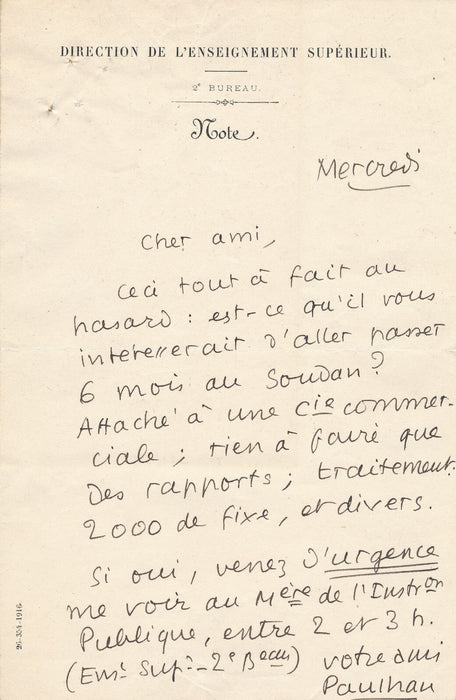 DIRECTION DE L'ENSEIGNEMENT SUPÉRIEUR.
2e BUREAU.
Note.
Mercredi
Cher ami,
Ceci tout à fait au
hasard : est-ce qu'il vous
intéresserait d'aller passer
6 mois au Soudan ?
Attaché à une Cie commer-
ciale ; rien à faire que
des rapports ; traitement.
2000 de fixe, et divers.
Si oui, venez d'urgence
me voir au Mère de l'Instron
Publique, entre 2 et 3 h.
(Ens. Supr - 2e Beau) votre ami
Paulhan
26-354-1916.